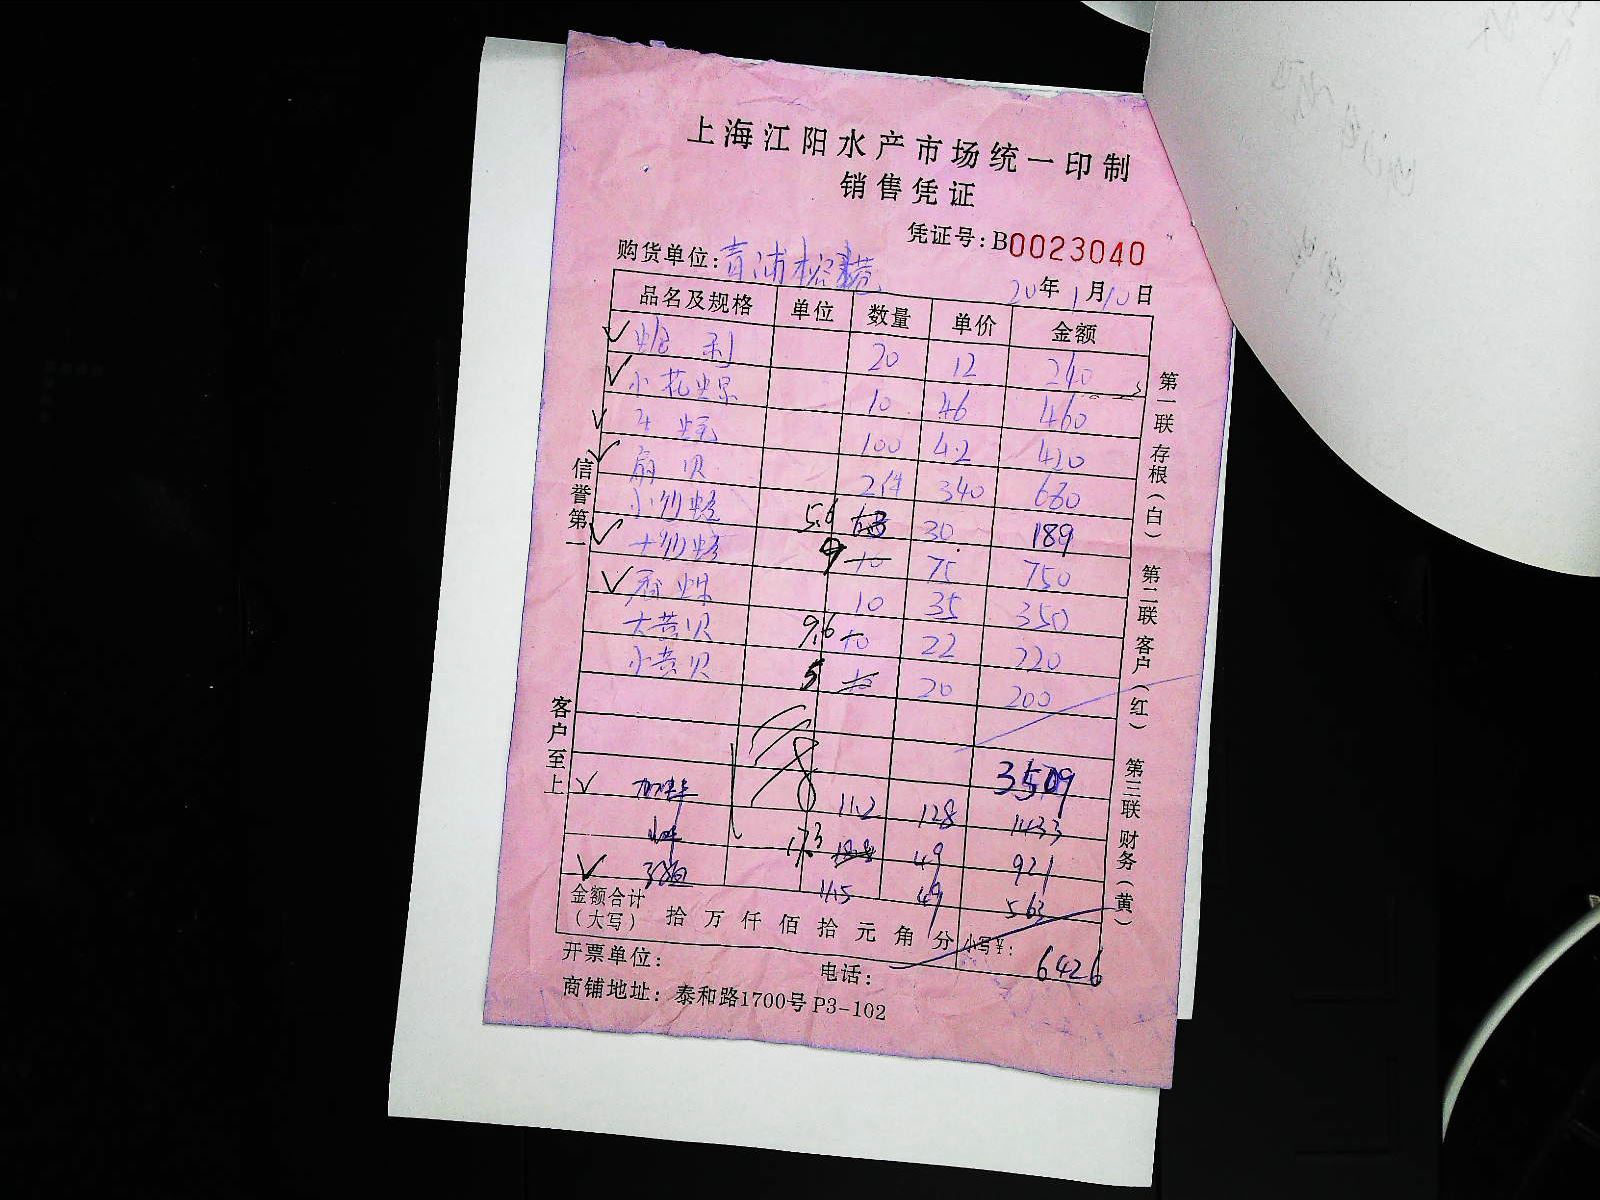 上海江阳水产市场统一印制
销售凭证
凭证号:B0023040
购货单位:青浦
20年1月10日
品名及规格 单位 数量 单价 金额
蛤利 20 12 240
小花螺 10 46 460
100 4.2 420
扇贝 2件 340 680
小 5.6 30 189
9 10 75 750
10 35 350
大黄贝 9.6 10 22 220
小黄贝 5 10 20 200
3509
11.2 128 1433
17.3 49 921
11.5 49 563
金额合计
(大写) 拾 万 仟 佰 拾 元 角 分 小写¥: 6426
开票单位: 电话:
商铺地址: 泰和路1700号P3-102
信誉第一
客户至上
第一联 存根(白)
第二联 客户(红)
第三联 财务(黄)